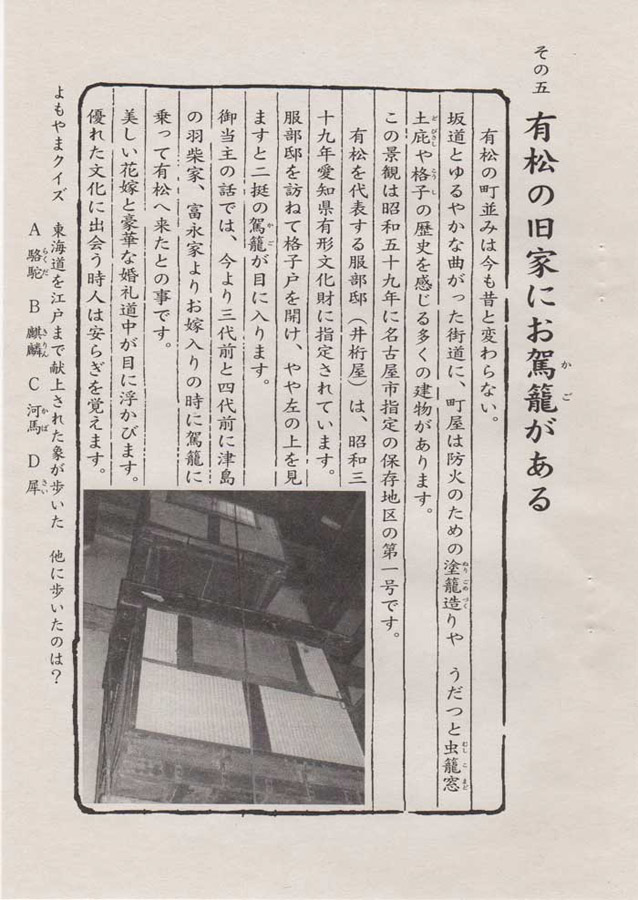 その五
有松の旧家にお駕籠がある
有松の町並みは今も昔と変わらない。
坂道とゆるやかな曲がった街道に、町屋は防火のための塗籠造りや　うだつと虫籠窓
土庇や格子の歴史を感じる多くの建物があります。
この景観は昭和五十九年に名古屋市指定の保存地区の第一号です。
有松を代表する服部邸（井桁屋）は、昭和三
十九年愛知県有形文化財に指定されています。
服部邸を訪ねて格子戸を開け、やや左の上を見
ますと二挺の駕籠が目に入ります。
御当主の話では、今より三代前と四代前に津島
の羽柴家、富永家よりお嫁入りの時に駕籠に
乗って有松へ来たとの事です。
美しい花嫁と豪華な婚礼道中が目に浮かびます。
優れた文化に出会う時人は安らぎを覚えます。
よもやまクイズ　東海道を江戸まで献上された象が歩いた　他に歩いたのは？
A 駱駝　B 麒麟　C 河馬　D 犀